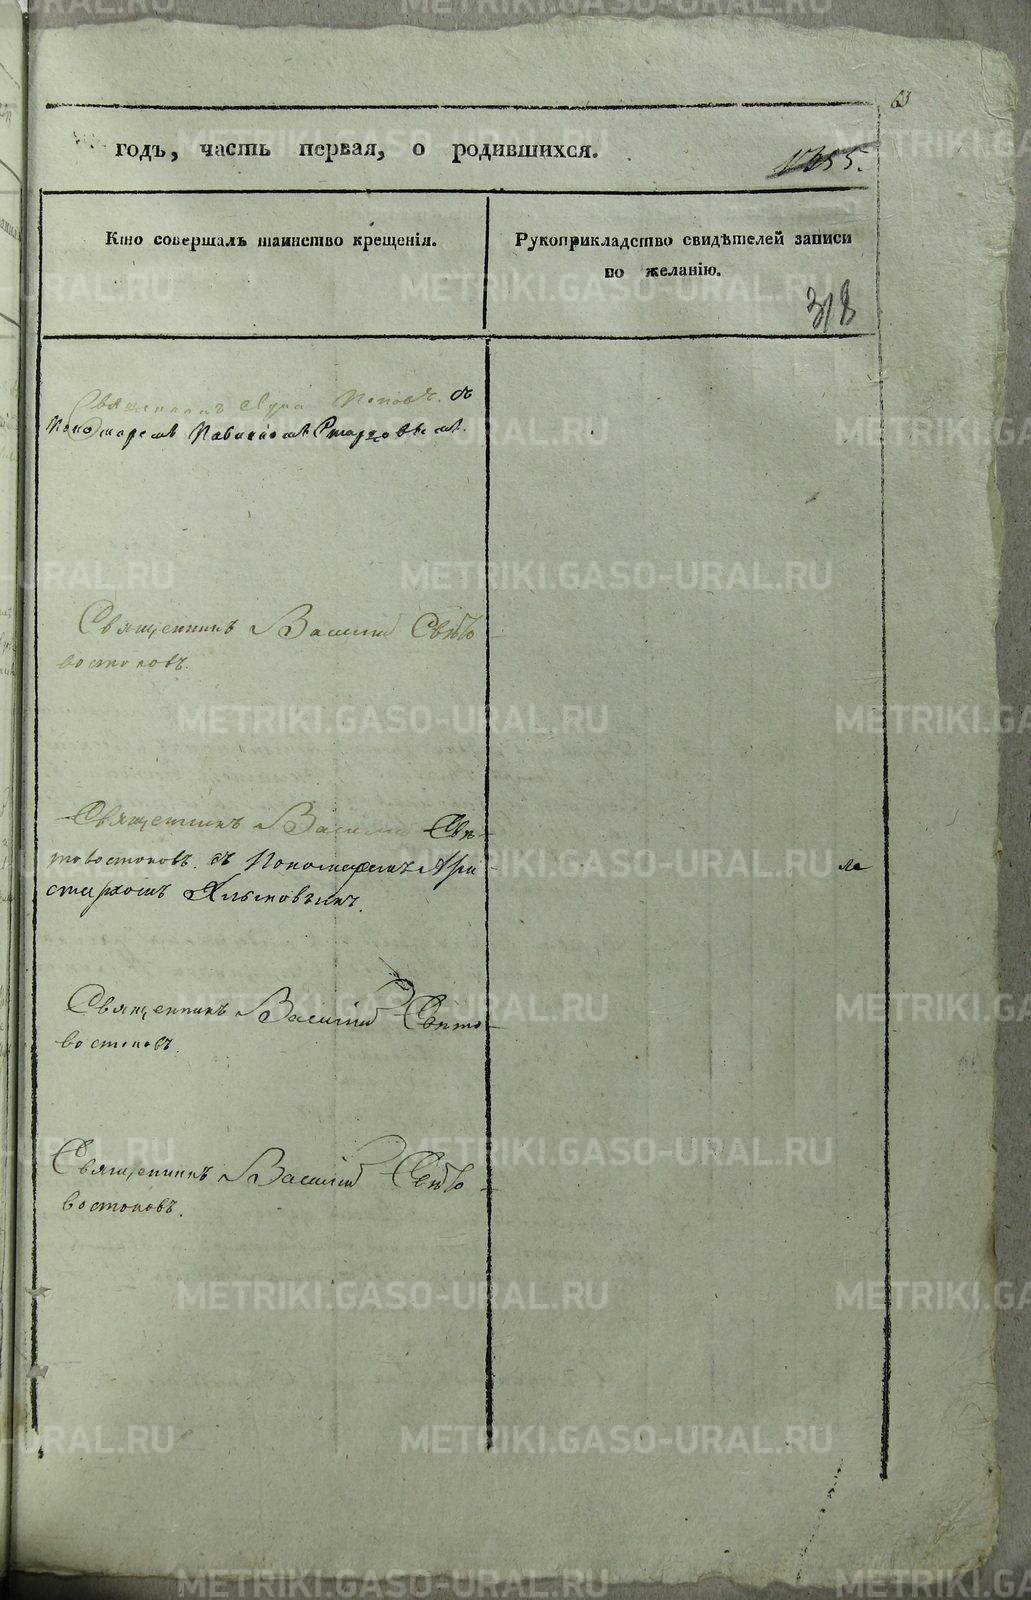 63
годъ, часть первая, о родившихся.
1355.
Кто совершалъ таинство крещенія.
Рукоприкладство свидѣтелей записи
по желанію.
318
Священникъ Лука Поповъ. съ
Пономаремъ
Священникъ Василій Свѣто
востоковъ.
Священникъ Василій Свѣ-
товостоковъ. съ Пономаремъ Ари-
стархомъ Хлыновымъ.
Священникъ Василій Свѣто-
востоковъ.
Священникъ Василій Свѣто-
востоковъ.
METRIKI.GASO-URAL.RU